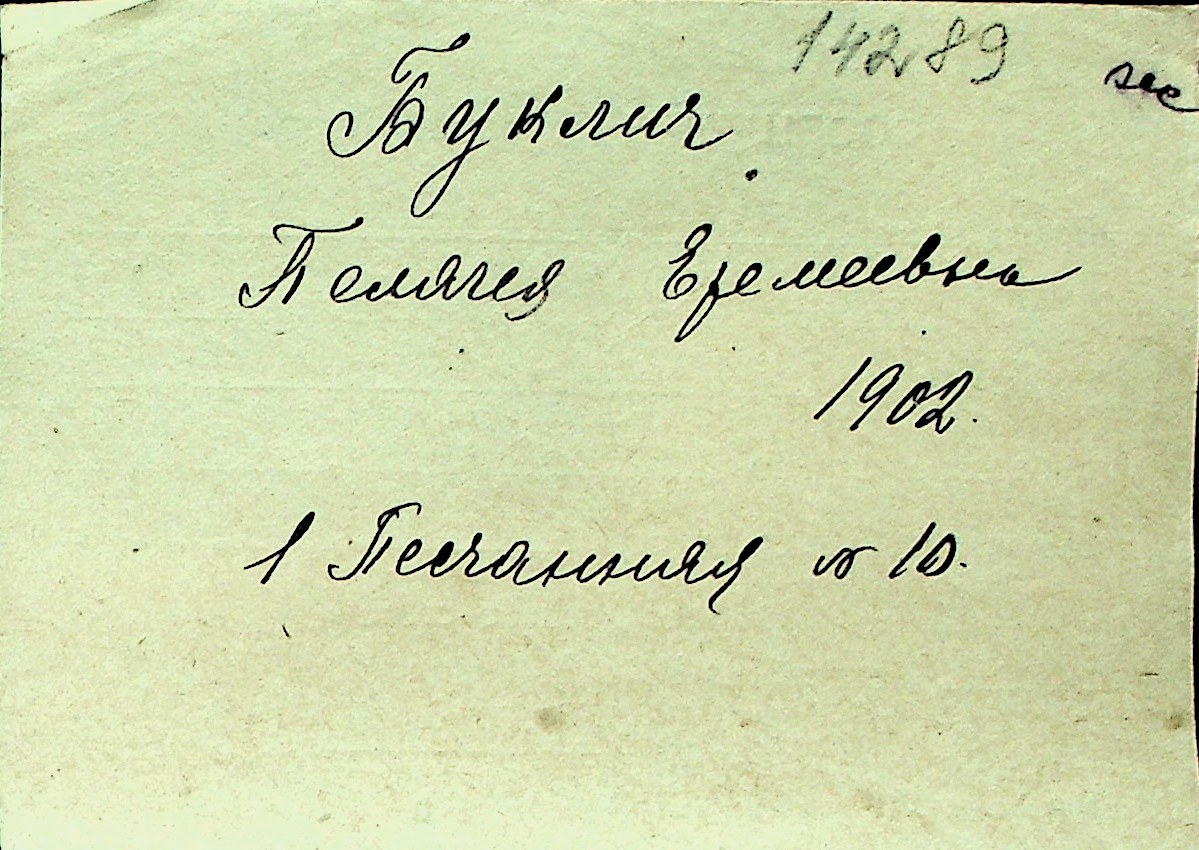 14289
Буклич
Пелагея Еремеевна
1902.
1 Песчанная № 10.